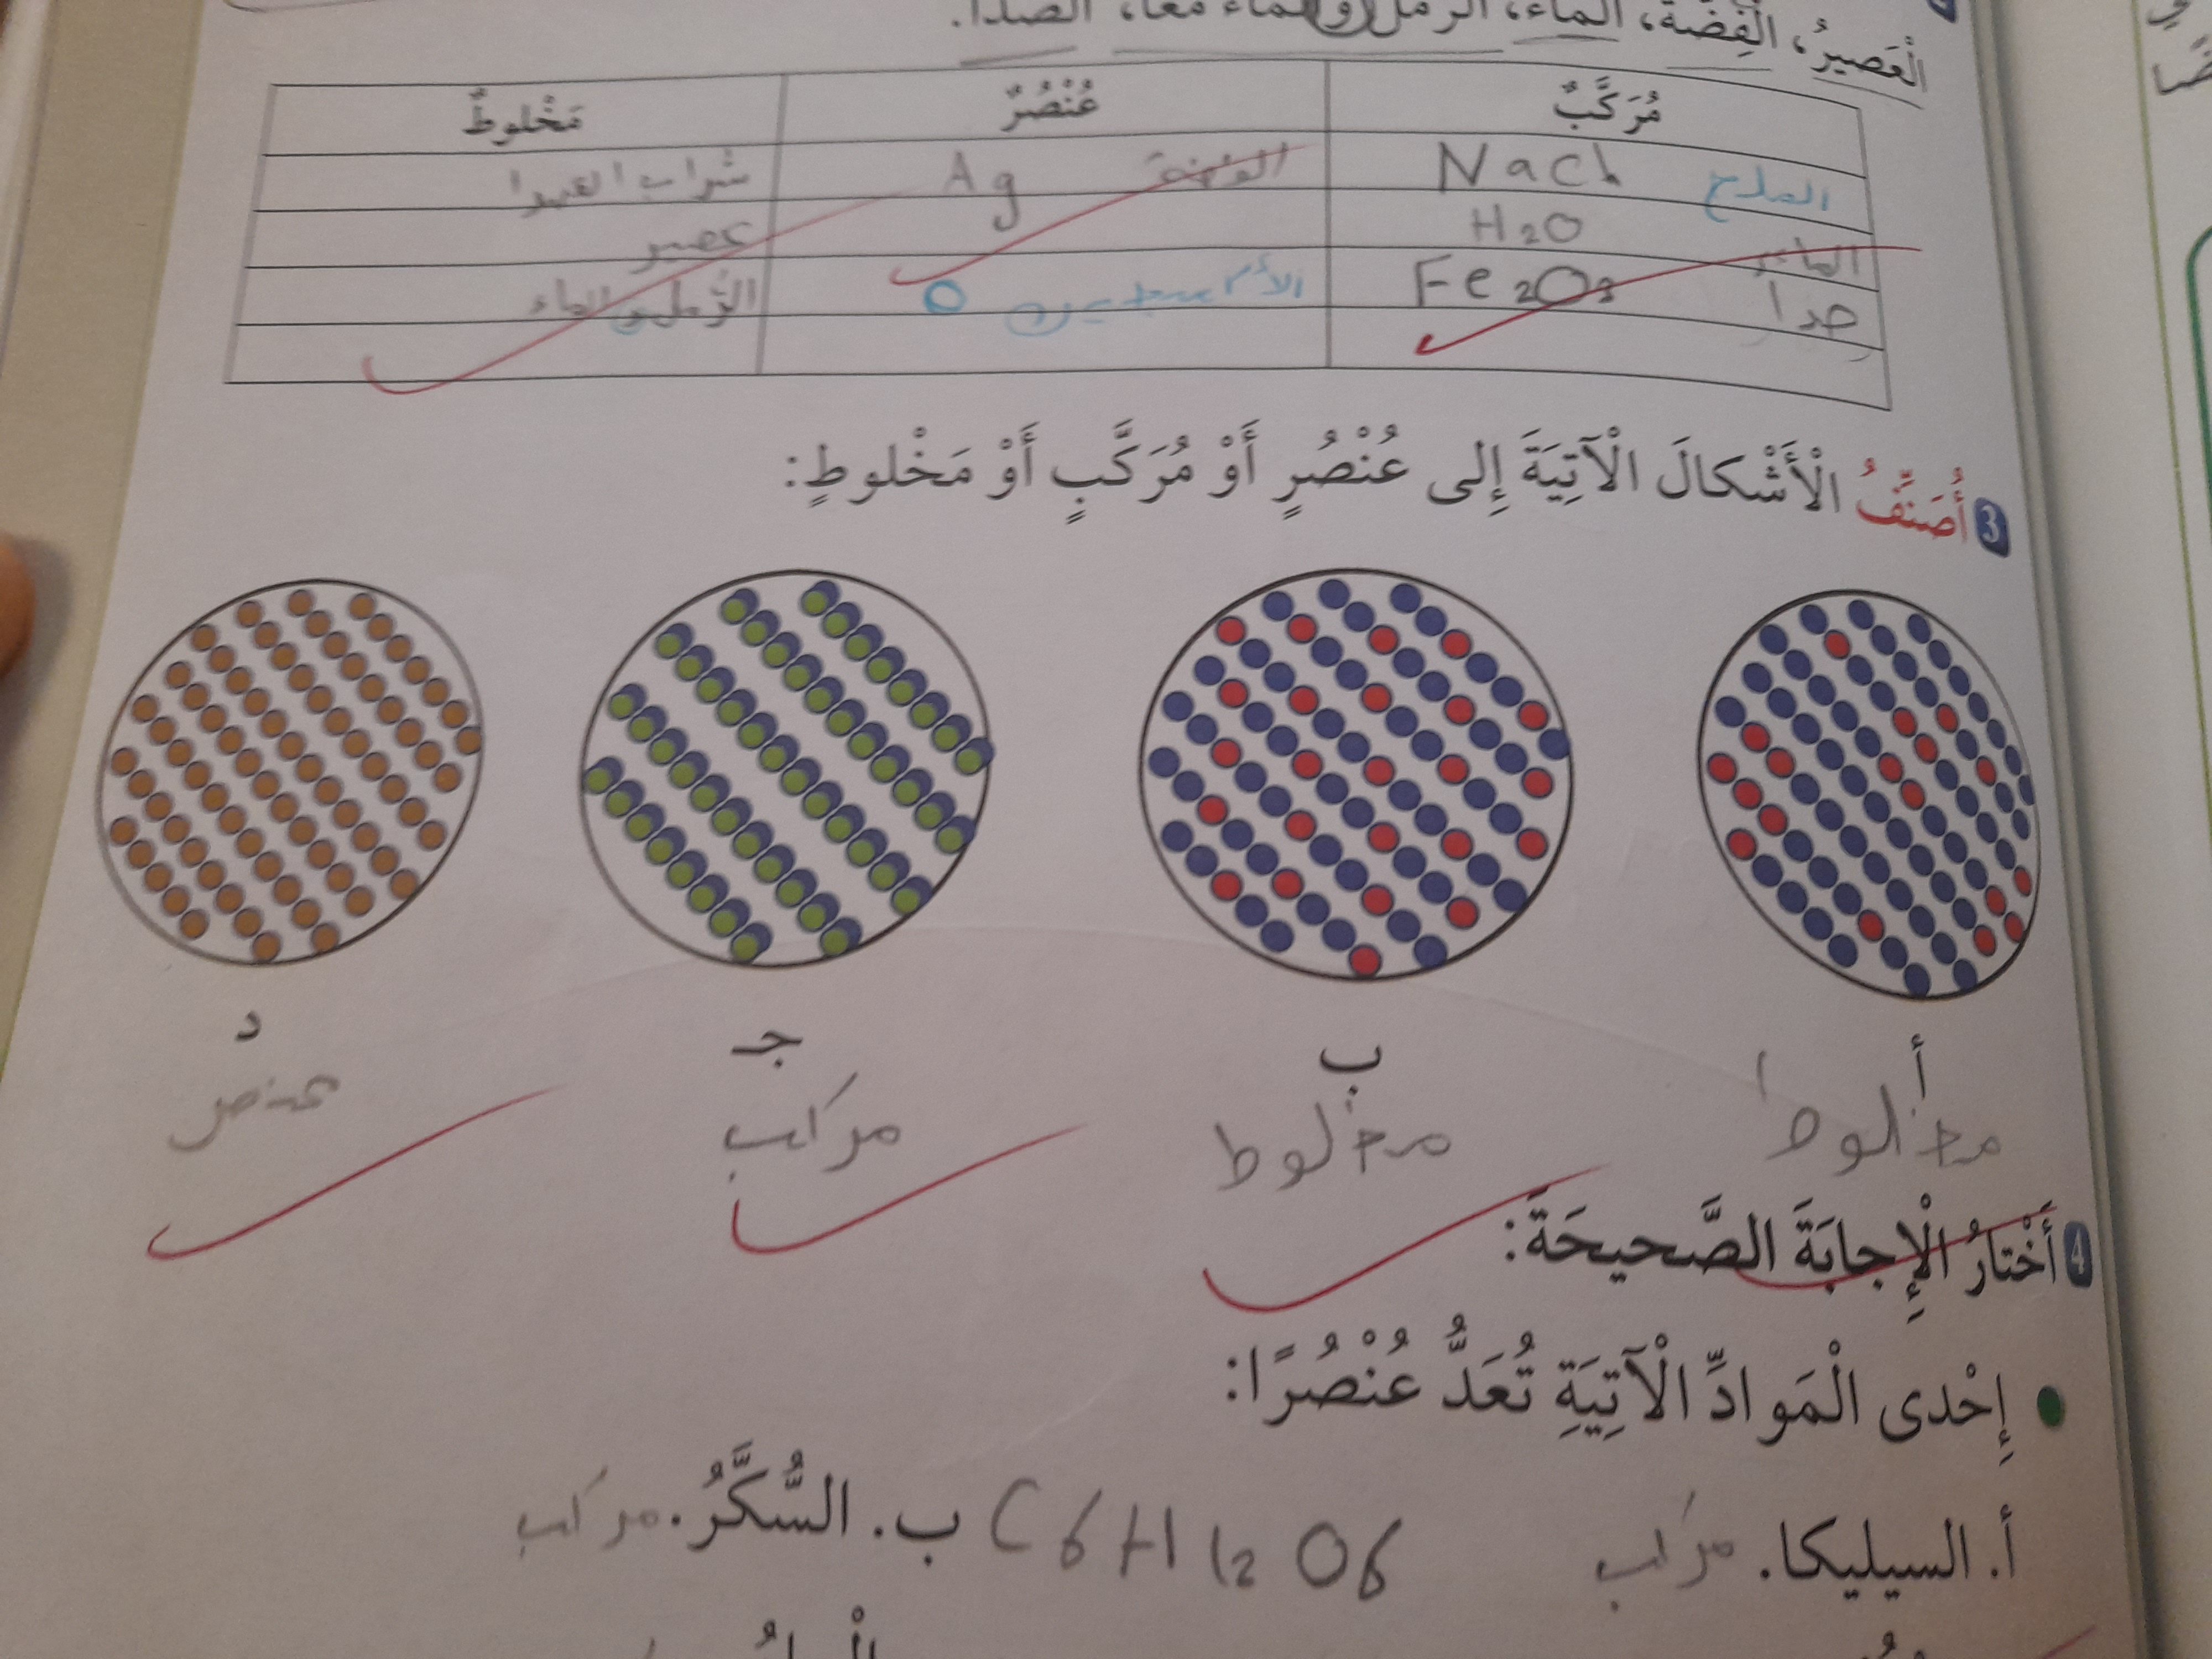 الْعَصيرُ، الْفِضَّةُ، الْماءُ، الرَّمْلُ وَالْماءُ مَعًا، الصَّدَأُ.
مُرَكَّبٌ عُنْصُرٌ مَخْلوطٌ
الملح NaCl Ag شراب
الماء H2O عصير
Fe2O3 O الرمل و الماء
3 أُصَنِّفُ الْأَشْكالَ الْآتِيَةَ إِلى عُنْصُرٍ أَوْ مُرَكَّبٍ أَوْ مَخْلوطٍ:
أ ب جـ د
مخلوط مخلوط مركب عنصر
4 أَخْتارُ الْإِجابَةَ الصَّحيحَةَ:
إِحْدى الْمَوادِّ الْآتِيَةِ تُعَدُّ عُنْصُرًا:
أ. السيليكا. مركب C6H12O6 ب. السُّكَّرُ. مركب